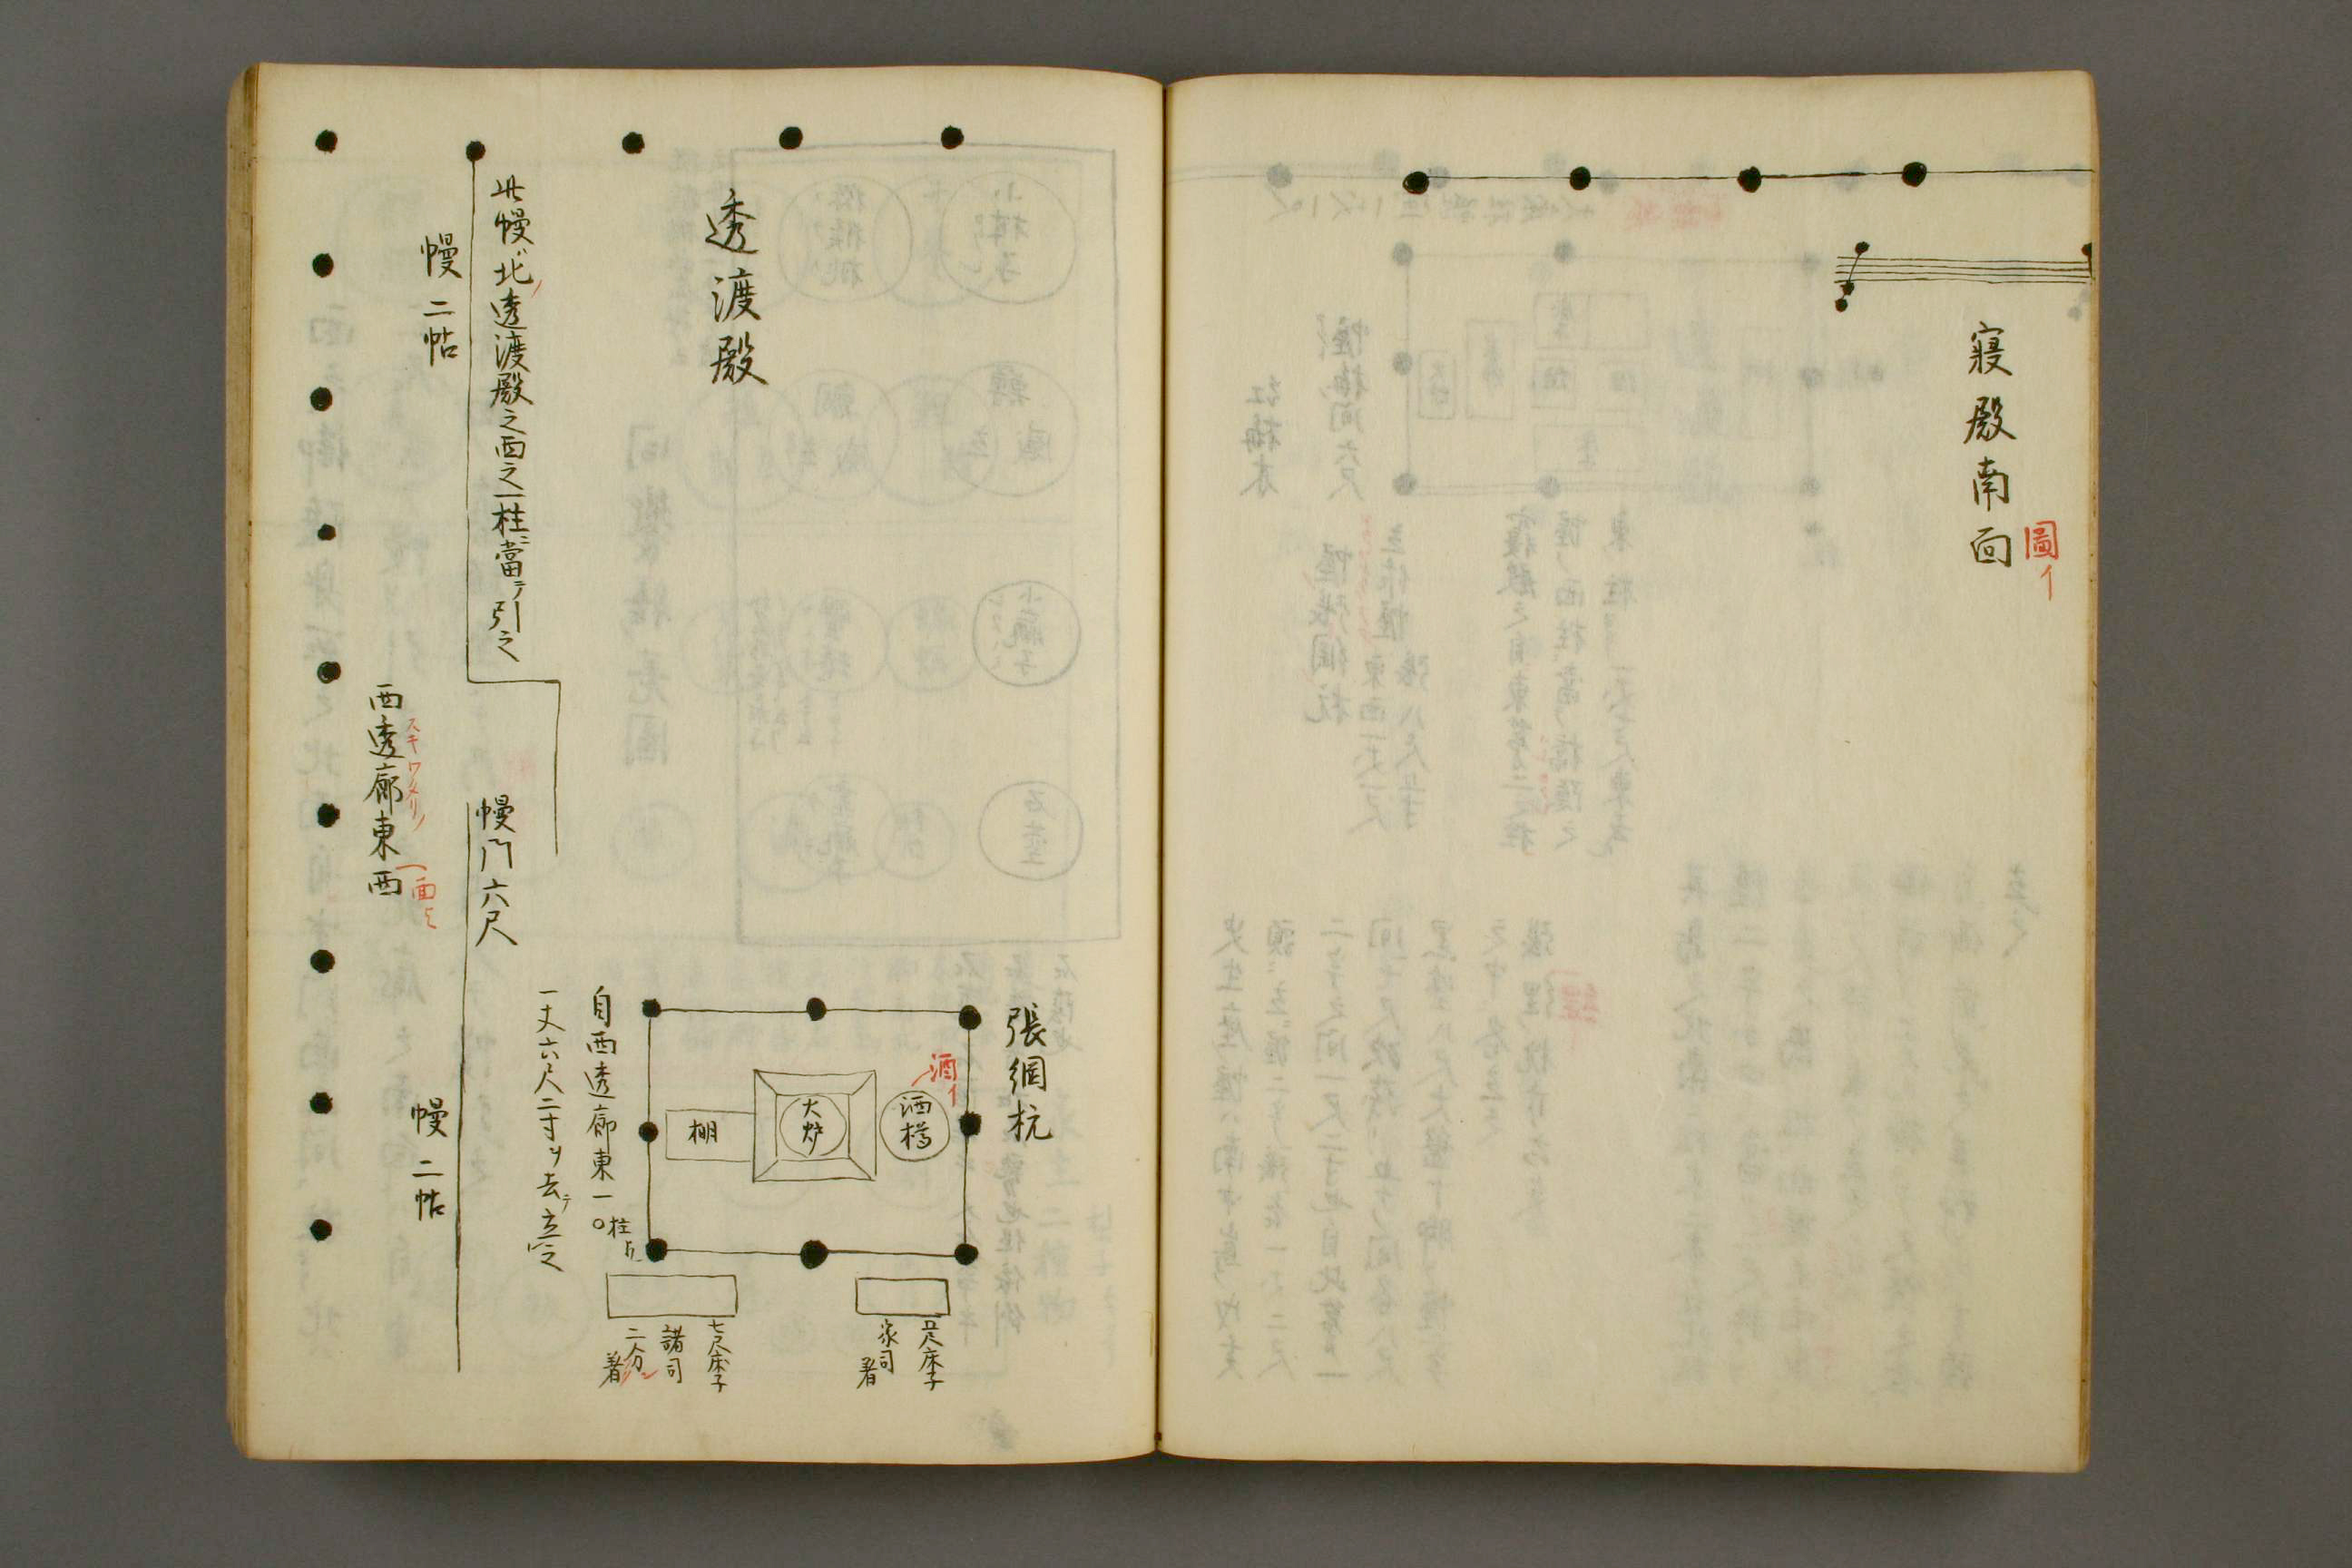 寢殿南面
圖イ
透渡殿
此幔ハ北ノ透渡殿之西之一柱ニ當テ引之
幔二帖
西透廊東西
スキワタリノ
一面也
幔門六尺
幔二帖
張綱杭
酒イ
洒樽
火炉
棚
自西透廊東一〇柱
一丈六尺二寸ヲ去テ立之
五尺床子
家司
着
七尺床子
諸司
二分
着